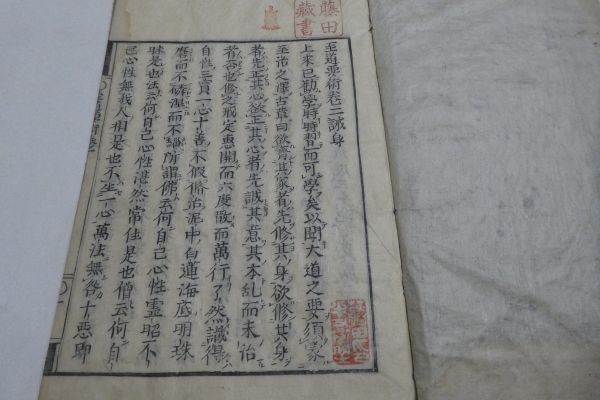 藤田
藏書
至道要術卷二誠身
上來已勸學時時習而可學矣以聞大道之要須家
至治之澤古章曰欲齊其家者先修其身欲修其身
者先正其心欲正其心者先誠其意其本亂而末治
者否也修之戒定惠開而六度散而萬行了然識得
自性三寶一心十善不假脩治泥中白蓮海底明珠
磨而不磷涅而不緇所謂佛云何自己心性靈昭不
昧是也法云何自己心性湛然常住是也僧云何自
己心性無我人相是也不生一心萬法無咎十惡即